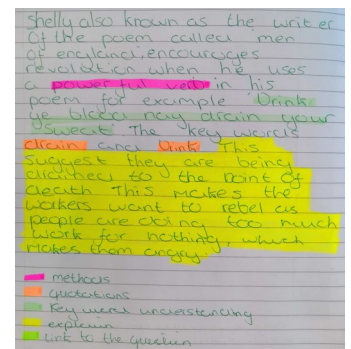 Shelly also known as the writer
Of the poem called 'men
of england', encourages
revolution when he uses
a powerful verb in his
poem for example 'Drink
ye blood nay drain your
sweat' The key words
drain and Drink This
suggest they are being
drained to the point of
death This makes the
workers want to rebel as
people are doing too much
work for nothing, which
makes them angry.
methods
quotations
Key word understanding
explain
link to the question